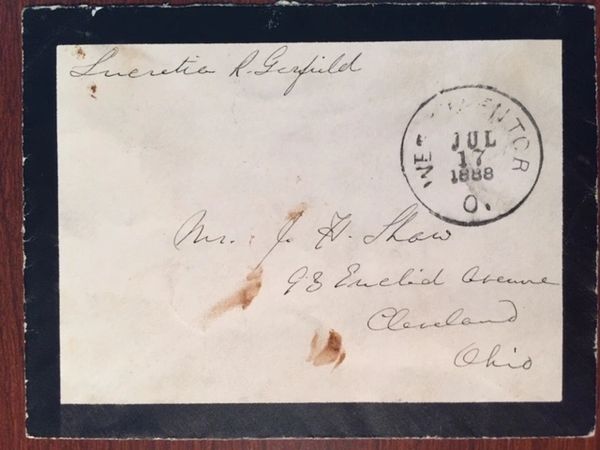 Lucretia R. Garfield
WEST MENTOR
JUL
17
1888
O.
Mr. J. H. Shaw
93 Euclid Avenue
Cleveland
Ohio